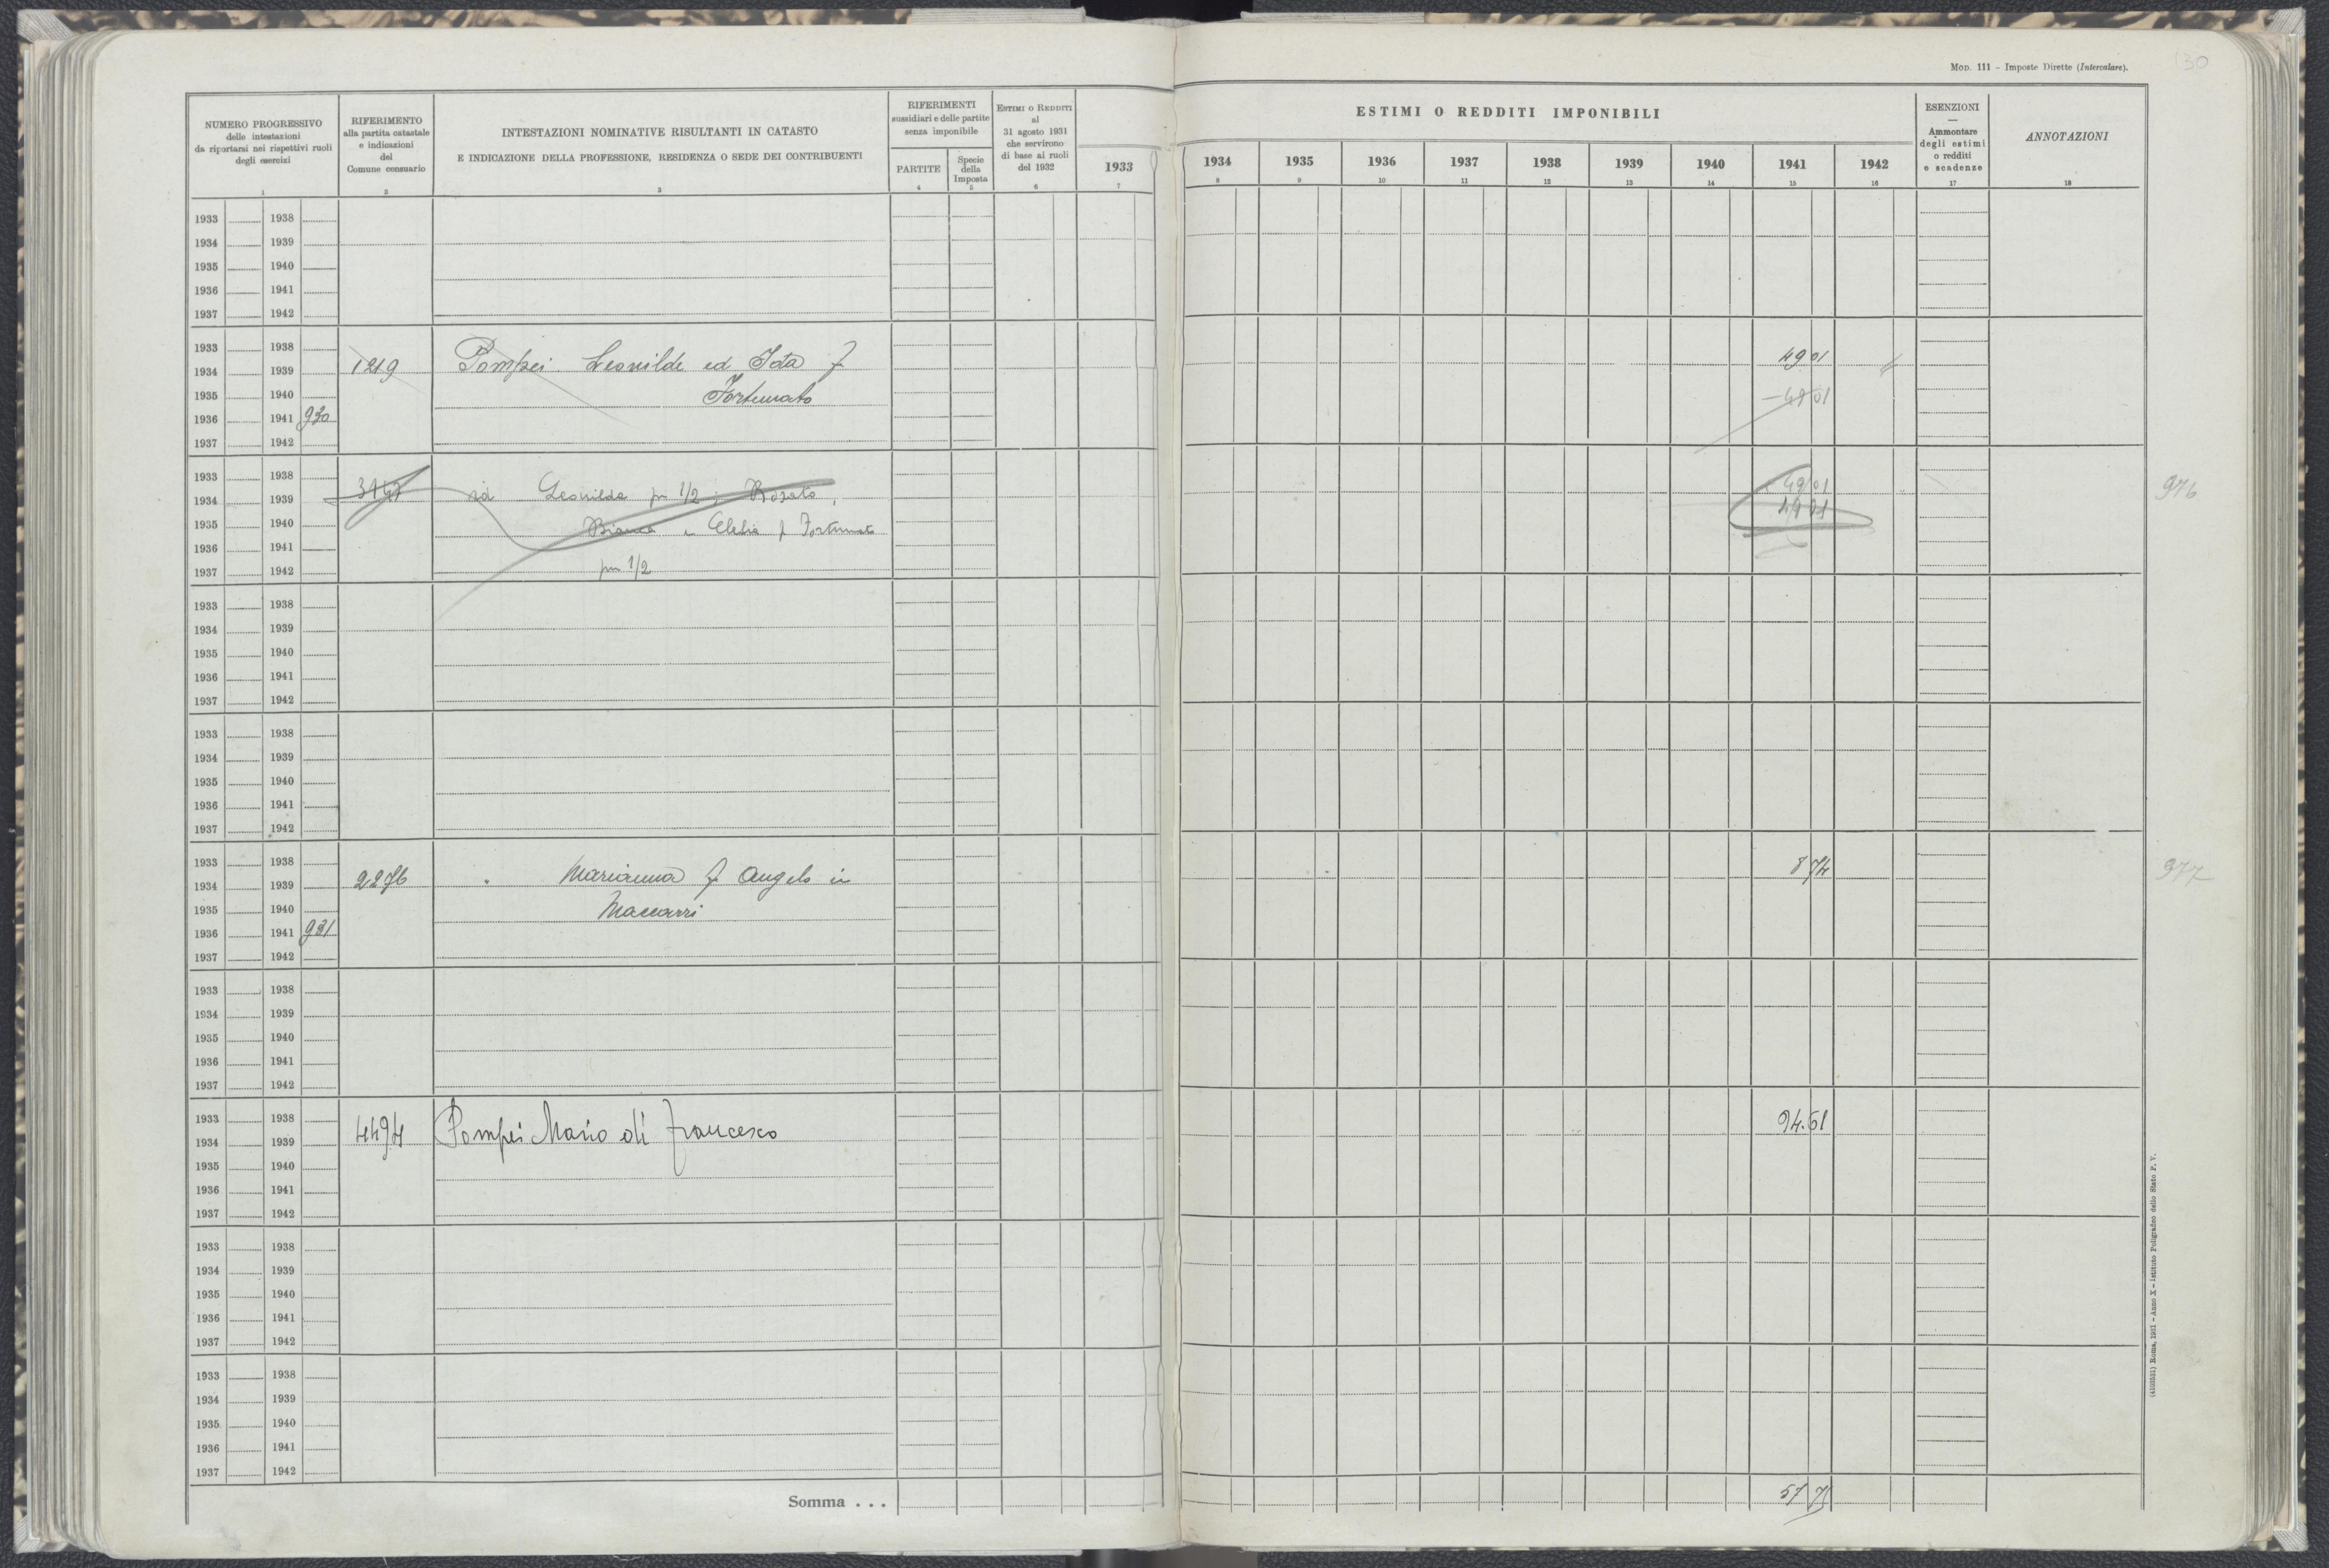 MOD. 111 – Imposte Dirette (Intercalare).
130
NUMERO PROGRESSIVO
delle intestazioni
da riportarsi nei rispettivi ruoli
degli esercizi
1
RIFERIMENTO
alla partita catastale
e indicazioni
del
Comune censuario
2
INTESTAZIONI NOMINATIVE RISULTANTI IN CATASTO
E INDICAZIONE DELLA PROFESSIONE, RESIDENZA O SEDE DEI CONTRIBUENTI
3
RIFERIMENTI
sussidiari e delle partite
senza imponibile
PARTITE
4
Specie
della
Imposta
5
ESTIMI O REDDITI
al
31 agosto 1931
che servirono
di base ai ruoli
del 1932
6
1933
7
ESTIMI O REDDITI IMPONIBILI
1934 1935 1936 1937 1938 1939 1940 1941 1942
8 9 10 11 12 13 14 15 16
ESENZIONI
—
Ammontare
degli estimi
o redditi
e scadenze
17
ANNOTAZIONI
18
1933 1938
1934 1939
1935 1940
1936 1941
1937 1942
1933 1938
1934 1939 1219 Pompei Leonilde ed Ida f 49 01
1935 1940 Fortunato
1936 1941 930
1937 1942
1933 1938
1934 1939 id Leonilde per 1/2; Rosato, 49 01 976
1935 1940 Bianca e Clelia f Fortunato
1936 1941
1937 1942 per 1/2
1933 1938
1934 1939
1935 1940
1936 1941
1937 1942
1933 1938
1934 1939
1935 1940
1936 1941
1937 1942
1933 1938
1934 1939 2276 " Marianna f Angelo in 8 74 977
1935 1940 Maccarri
1936 1941 931
1937 1942
1933 1938
1934 1939
1935 1940
1936 1941
1937 1942
1933 1938
1934 1939 4494 Pompei Mario di Francesco 94.61
1935 1940
1936 1941
1937 1942
1933 1938
1934 1939
1935 1940
1936 1941
1937 1942
1933 1938
1934 1939
1935 1940
1936 1941
1937 1942
Somma . . . 57 75
(4103531) Roma, 1931 – Anno X – Istituto Poligrafico dello Stato P. V.